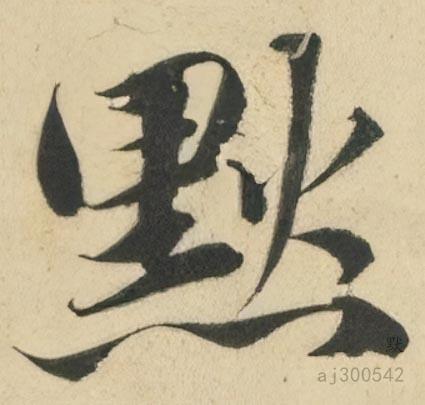 默
默
aj300542